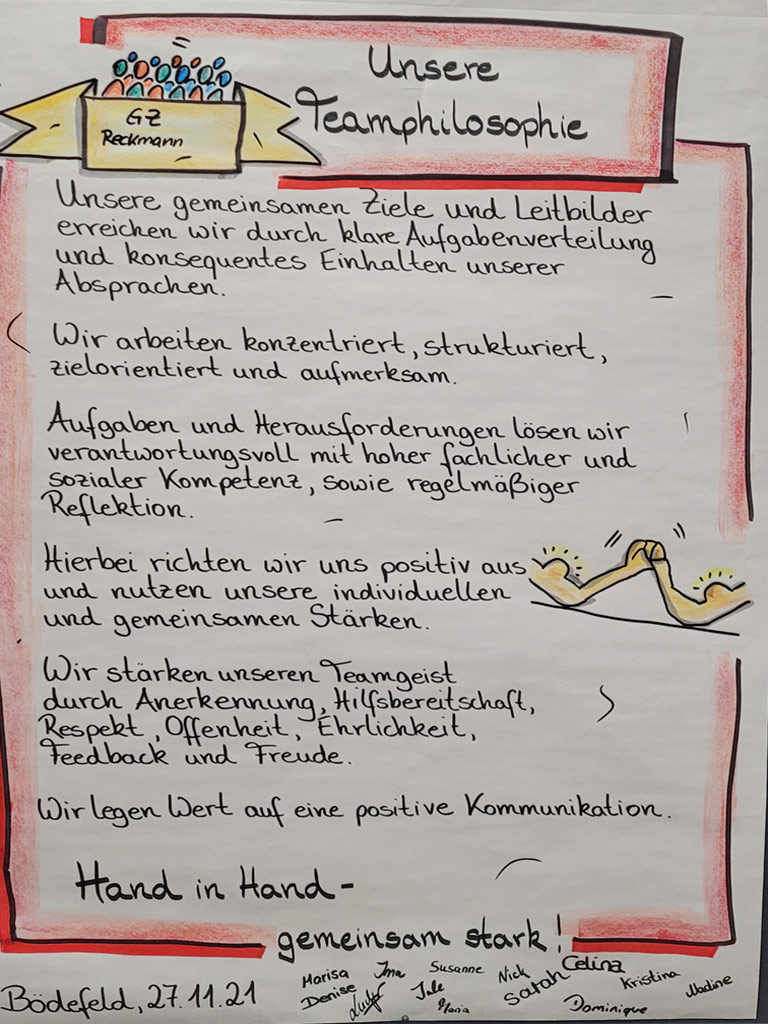 Unsere
Teamphilosophie
GZ
Reckmann
Unsere gemeinsamen Ziele und Leitbilder
erreichen wir durch klare Aufgabenverteilung
und konsequentes Einhalten unserer
Absprachen.
Wir arbeiten konzentriert, strukturiert,
zielorientiert und aufmerksam.
Aufgaben und Herausforderungen lösen wir
verantwortungsvoll mit hoher fachlicher und
sozialer Kompetenz, sowie regelmäßiger
Reflektion.
Hierbei richten wir uns positiv aus
und nutzen unsere individuellen
und gemeinsamen Stärken.
Wir stärken unseren Teamgeist
durch Anerkennung, Hilfsbereitschaft,
Respekt, Offenheit, Ehrlichkeit,
Feedback und Freude.
Wir legen Wert auf eine positive Kommunikation.
Hand in Hand-
gemeinsam stark!
Bödefeld, 27.11.21
Marisa Susanne Nick Celina
Denise Jule Maria Sarah Kristina Nadine
Dominique